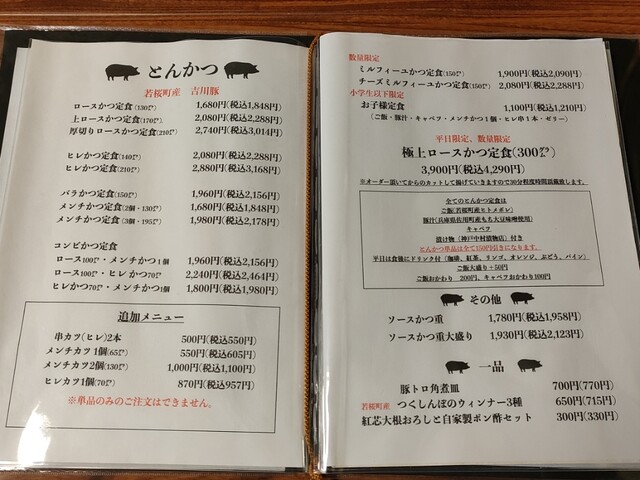 とんかつ
若桜町産 吉川豚
ロースかつ定食(130㌘) 1,680円(税込1,848円)
上ロースかつ定食(170㌘) 2,080円(税込2,288円)
厚切りロースかつ定食(210㌘) 2,740円(税込3,014円)
ヒレかつ定食(140㌘) 2,080円(税込2,288円)
ヒレかつ定食(210㌘) 2,880円(税込3,168円)
バラかつ定食(150㌘) 1,960円(税込2,156円)
メンチかつ定食(2個・130㌘) 1,680円(税込1,848円)
メンチかつ定食(3個・195㌘) 1,980円(税込2,178円)
コンビかつ定食
ロース100㌘・メンチかつ1個 1,960円(税込2,156円)
ロース100㌘・ヒレかつ70㌘ 2,240円(税込2,464円)
ヒレかつ70㌘・メンチかつ1個 1,800円(税込1,980円)
追加メニュー
串カツ(ヒレ)2本 500円(税込550円)
メンチカツ1個(65㌘) 550円(税込605円)
メンチカツ2個(130㌘) 1,000円(税込1,100円)
ヒレカツ1個(70㌘) 870円(税込957円)
※単品のみのご注文はできません。
数量限定
ミルフィーユかつ定食(150㌘) 1,900円(税込2,090円)
チーズミルフィーユかつ定食(150㌘) 2,080円(税込2,288円)
小学生以下限定
お子様定食 1,100円(税込1,210円)
(ご飯・豚汁・キャベツ・メンチかつ1個・ヒレ串1本・ゼリー)
平日限定、数量限定
極上ロースかつ定食(300㌘)
3,900円(税込4,290円)
※オーダー頂いてからのカットして揚げていきますので30分程度時間頂戴致します。
全てのとんかつ定食は
ご飯(若桜町産ヒトメボレ)
豚汁(兵庫県佐用町産もち大豆味噌使用)
キャベツ
漬け物(神戸中村漬物店)付き
とんかつ単品は全て150円引きになります。
平日は食後にドリンク付(珈琲、紅茶、リンゴ、オレンジ、ぶどう、パイン)
ご飯大盛り+50円
ご飯おかわり 200円、キャベツおかわり100円
その他
ソースかつ重 1,780円(税込1,958円)
ソースかつ重大盛り 1,930円(税込2,123円)
一品
豚トロ角煮皿 700円(770円)
若桜町産 つくしんぼのウィンナー3種 650円(715円)
紅芯大根おろしと自家製ポン酢セット 300円(330円)